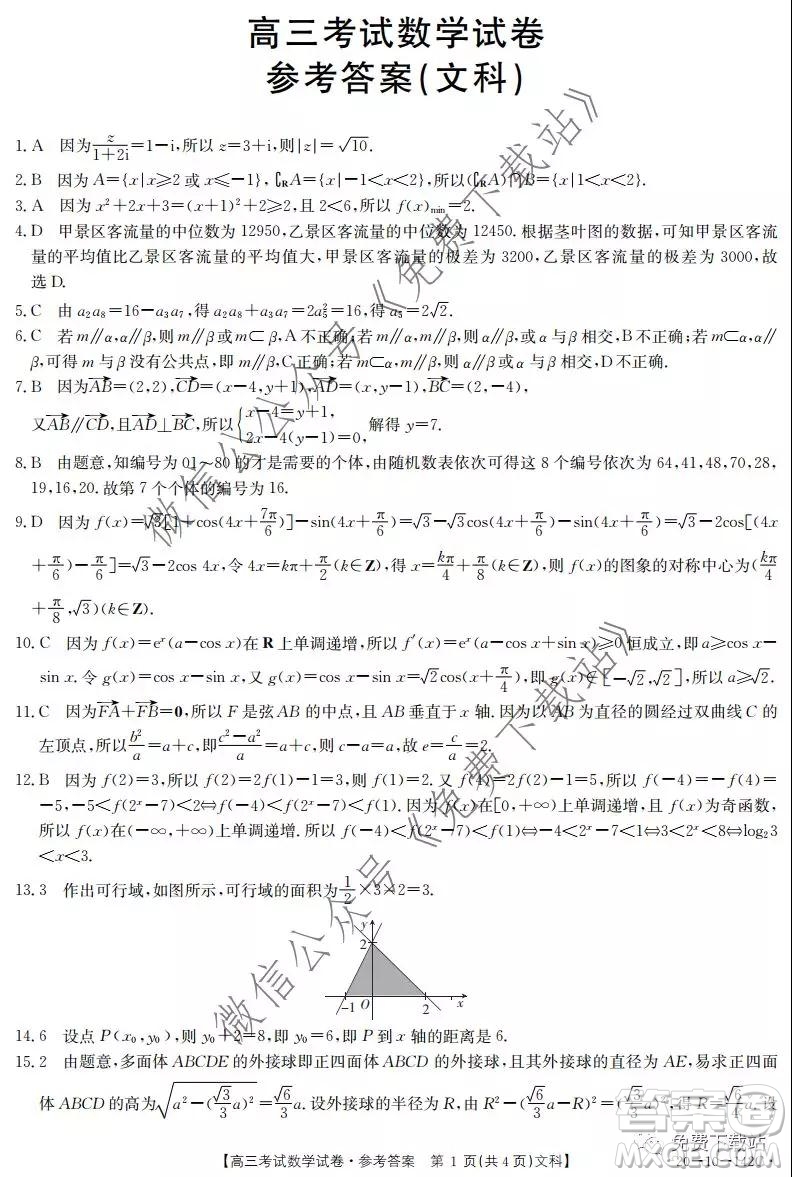 高三考试数学试卷
参考答案(文科)
1. A 因为z/(1+2i)=1-i,所以 z=3+i,则|z|=√10.
2. B 因为 A={x|x≥2 或 x≤-1},∁RA={x|-1<x<2},所以(∁RA)∩B={x|1<x<2}.
3. A 因为 x²+2x+3=(x+1)²+2≥2,且 2<6,所以 f(x)min=2.
4. D 甲景区客流量的中位数为 12950,乙景区客流量的中位数为 12450.根据茎叶图的数据,可知甲景区客流
量的平均值比乙景区客流量的平均值大,甲景区客流量的极差为 3200,乙景区客流量的极差为 3000,故
选 D.
5. C 由 a₂a₈=16-a₃a₇,得 a₂a₈+a₃a₇=2a₅²=16,得 a₅=2√2.
6. C 若 m∥α,α∥β,则 m∥β或m⊂β,A 不正确;若 m∥α,m∥β,则 α∥β,或 α 与 β 相交,B 不正确;若 m⊂α,α∥
β,可得 m 与 β 没有公共点,即 m∥β,C正确;若 m⊂α,n∥β,则 α∥β或α与β相交,D不正确.
7. B 因为AB=(2,2),CD=(x-4,y+1),AD=(x,y-1),BC=(2,-4),
又AB∥CD,且AD⊥BC,所以{x-4=y+1, 2x-4(y-1)=0, 解得 y=7.
8. B 由题意,知编号为 01~80 的才是需要的个体,由随机数表依次可得这 8 个编号依次为 64,41,48,70,28,
19,16,20.故第 7 个个体的编号为 16.
9. D 因为 f(x)=√3[1-cos(4x+7π/6)]-sin(4x+π/6)=√3-√3cos(4x+π/6)-sin(4x+π/6)=√3-2cos[(4x
+π/6)-π/6]=√3-2cos 4x,令 4x=kπ+π/2(k∈Z),得 x=kπ/4+π/8(k∈Z),则 f(x)的图象的对称中心为(kπ/4
+π/8,√3)(k∈Z).
10. C 因为 f(x)=eˣ(a-cos x)在 R 上单调递增,所以 f′(x)=eˣ(a-cos x+sin x)≥0恒成立,即 a≥cos x-
sin x.令 g(x)=cos x-sin x,又 g(x)=cos x-sin x=√2cos(x+π/4),即 g(x)∈[-√2,√2],所以 a≥√2.
11. C 因为FA+FB=0,所以 F 是弦AB 的中点,且 AB 垂直于 x 轴.因为以 AB 为直径的圆经过双曲线 C 的
左顶点,所以b²/a=a+c,即(c²-a²)/a=a+c,则 c-a=a,故 e=c/a=2.
12. B 因为 f(2)=3,所以 f(2)=2f(1)-1=3,则 f(1)=2.又 f(4)=2f(2)-1=5,所以 f(-4)=-f(4)=
-5,-5<f(2ˣ-7)<2⇔f(-4)<f(2ˣ-7)<f(1).因为 f(x)在[0,+∞)上单调递增,且 f(x)为奇函数,
所以 f(x)在(-∞,+∞)上单调递增.所以 f(-4)<f(2ˣ-7)<f(1)⇔-4<2ˣ-7<1⇔3<2ˣ<8⇔log₂3
<x<3.
13. 3 作出可行域,如图所示,可行域的面积为1/2×3×2=3.
y
2
-1 O 2 x
14. 6 设点 P(x₀,y₀),则 y₀+2=8,即 y₀=6,即 P 到 x 轴的距离是 6.
15. 2 由题意,多面体 ABCDE 的外接球即正四面体 ABCD 的外接球,且其外接球的直径为 AE,易求正四面
体 ABCD 的高为√(a²-(√3/3 a)²)=√6/3 a.设外接球的半径为 R,由 R²-(√6/3 a-R)²=(√3/3 a)²,得 R=√6/4 a.设
【高三考试数学试卷·参考答案 第 1 页(共 4 页)文科】
微信公众号《免费下载站》
微信公众号《免费下载站》
答案圈
免费下载站